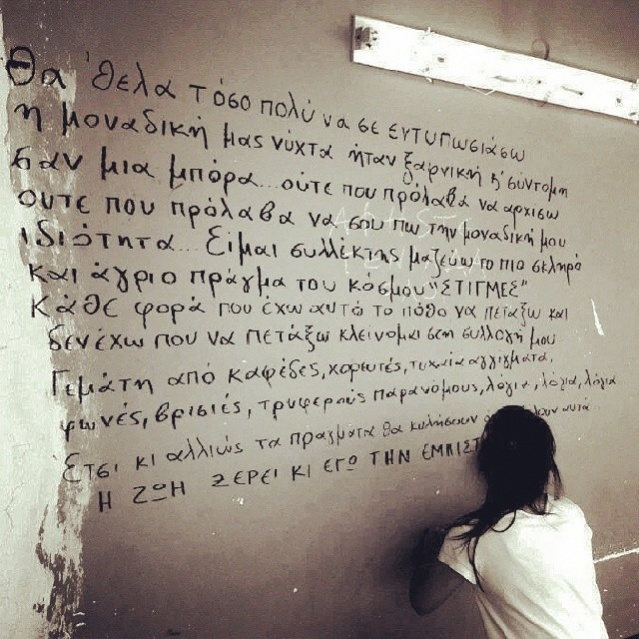 Θα 'θελα τόσο πολύ να σε εντυπωσιάσω
η μοναδική μας νύχτα ήταν ξαφνική κ' σύντομη
σαν μια μπόρα... ούτε που πρόλαβα να αρχίσω
ούτε που πρόλαβα να σου πω την μοναδική μου
ιδιότητα... Είμαι συλλέκτης μαζεύω το πιο σκληρό
και άγριο πράγμα του κόσμου "ΣΤΙΓΜΕΣ"
Κάθε φορά που έχω αυτό το πόθο να πετάξω και
δεν έχω που να πετάξω κλείνομαι στη συλλογή μου
Γεμάτη από καφέδες, χωρωτές, τυχαία αγγίγματα,
φωνές, βρισιές, τρυφερούς παρανόμους, λόγια, λόγια, λόγια
Ετσι κι αλλιώς τα πράγματα θα κυλήσουν αυτά
Η ΖΩΗ ΞΕΡΕΙ ΚΙ ΕΓΩ ΤΗΝ